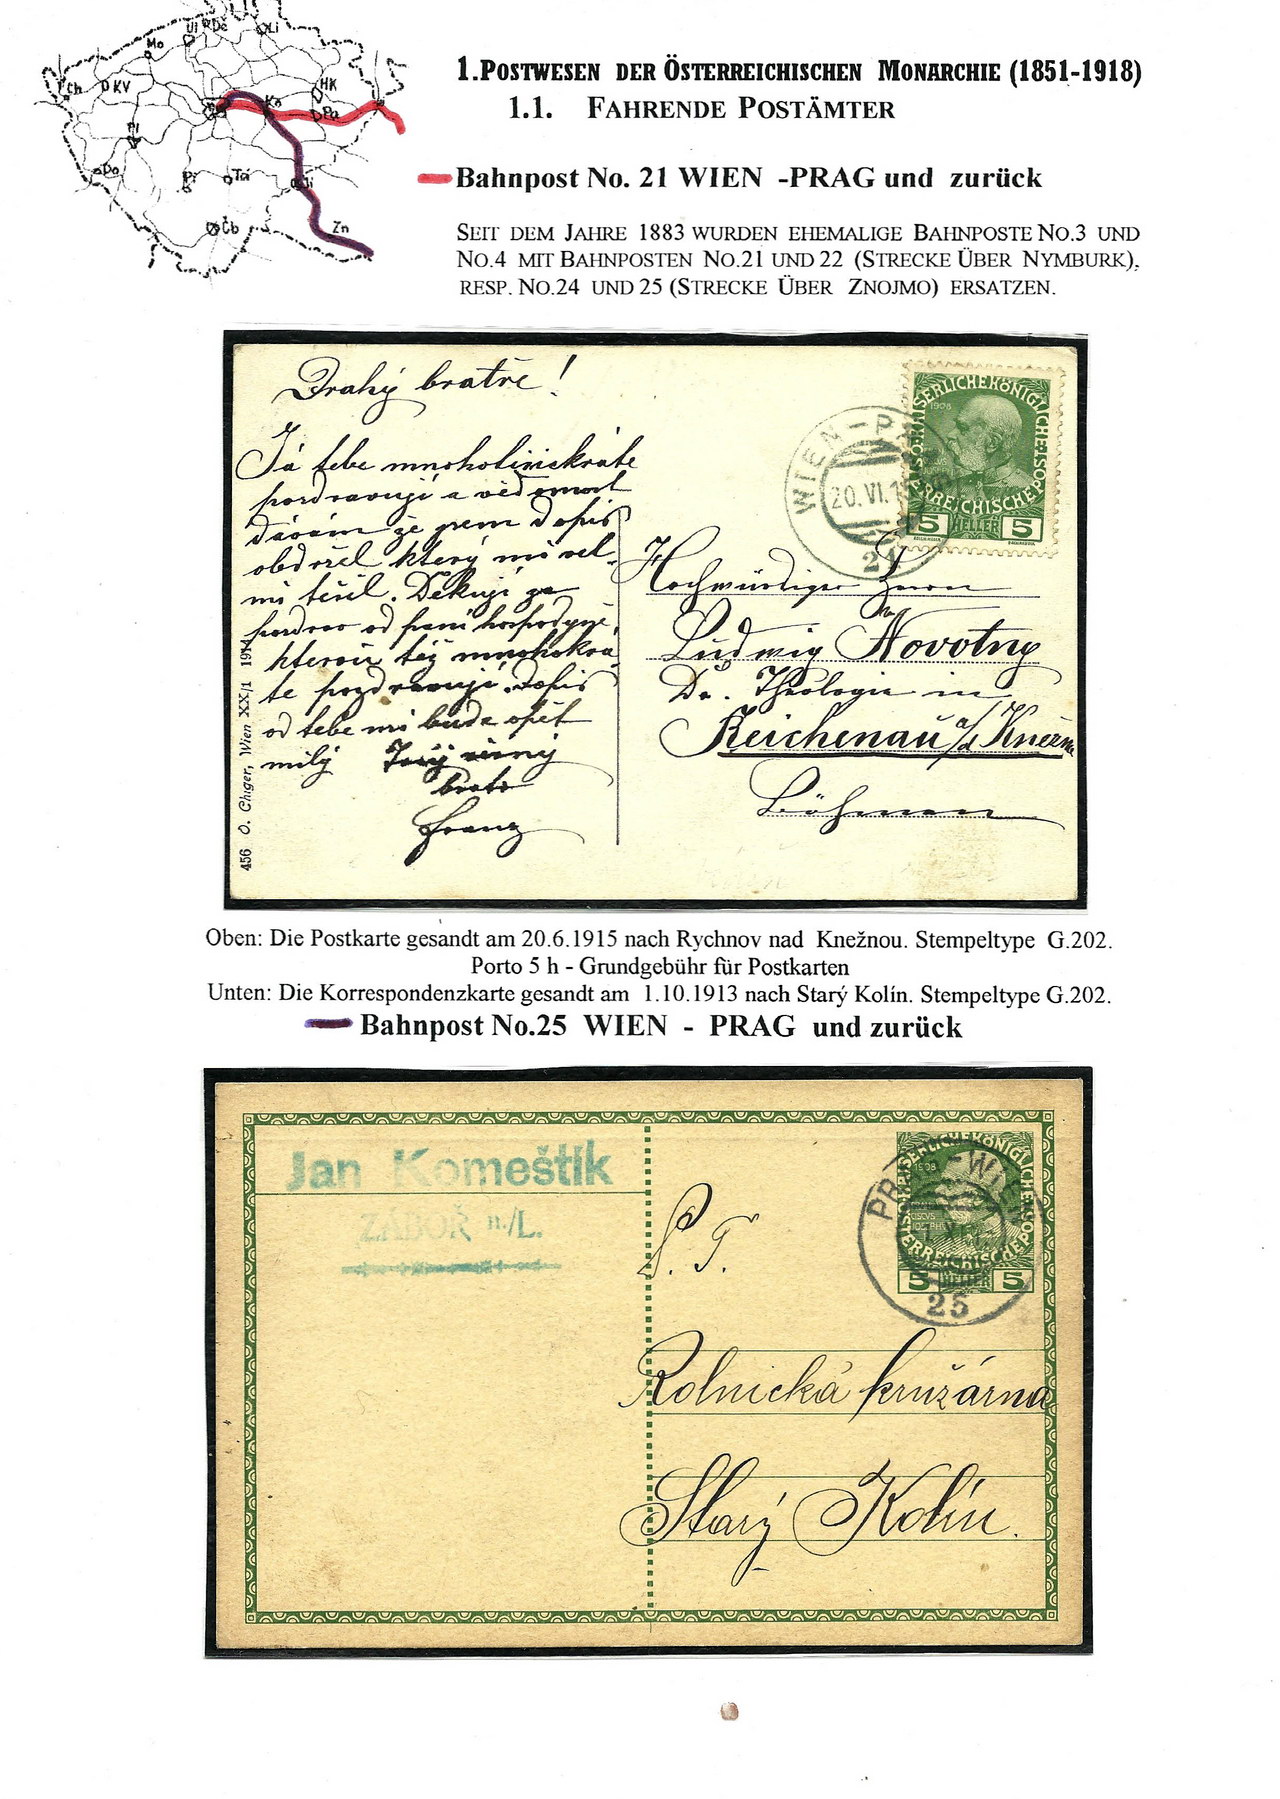 Ul Dč Li
Mo
Ch KV HK
Ko Pa
Pl
Do Pi Tá Ji
Čb Zn
1.POSTWESEN DER ÖSTERREICHISCHEN MONARCHIE (1851-1918)
1.1. FAHRENDE POSTÄMTER
Bahnpost No. 21 WIEN -PRAG und zurück
SEIT DEM JAHRE 1883 WURDEN EHEMALIGE BAHNPOSTE NO.3 UND
NO.4 MIT BAHNPOSTEN NO.21 UND 22 (STRECKE ÜBER NYMBURK),
RESP. NO.24 UND 25 (STRECKE ÜBER ZNOJMO) ERSATZEN.
Drahý bratře!
Já tebe mnohotisickráte
pozdravuji a vědomost
dávám že jsem dopis
obdržel který mě vel-
mi těšil. Děkuji za
pozdrav od paní hospodyně,
kterou též mnohokrá
te pozdravuji. Dopis
od tebe mi bude opět
milý Tvůj věrný
bratr
Franz
456 O. Chiger, Wien XX/1 1914
WIEN-P
20.VI.15
21
KAISERLICHE KÖNIGLICHE ÖSTERREICHISCHE POST
1908
5 HELLER 5
Hochwürdiger Herrn
Ludwig Novotny
Dr. Theologie in
Reichenau a/d Kněžna
Böhmen
Oben: Die Postkarte gesandt am 20.6.1915 nach Rychnov nad Knežnou. Stempeltype G.202.
Porto 5 h - Grundgebühr für Postkarten
Unten: Die Korrespondenzkarte gesandt am 1.10.1913 nach Starý Kolín. Stempeltype G.202.
Bahnpost No.25 WIEN - PRAG und zurück
Jan Komeštík
ZÁBOŘ n./L.
KAISERLICHE KÖNIGLICHE ÖSTERREICHISCHE POST
1908
5 HELLER 5
PRAG-WIEN
25
P. T.
Rolnická kružárna
Starý Kolín.